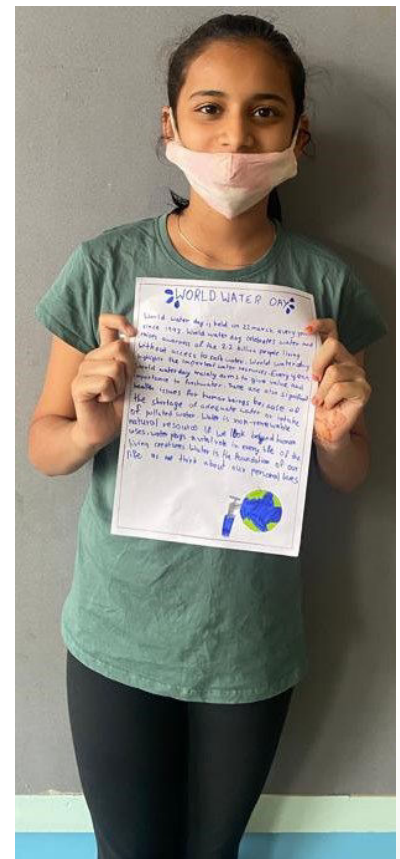 WORLD WATER DAY
World water day is held on 22 march every year
since 1993. World water day celebrates water and
raises awareness of the 2.2 billion people living
without access to safe water. World water day
highlights the importent water resources. Every year
world water day mainly aims to give value and
importance to freshwater. There are also significant
health issues for human beings
the shortage of adequate water or intake
of polluted water. Water is non-renewable
natural resources if we look beyond human
uses. water plays a vital role in every life of the
living creatures. Water is the foundation of our
life as we think about our personal lives